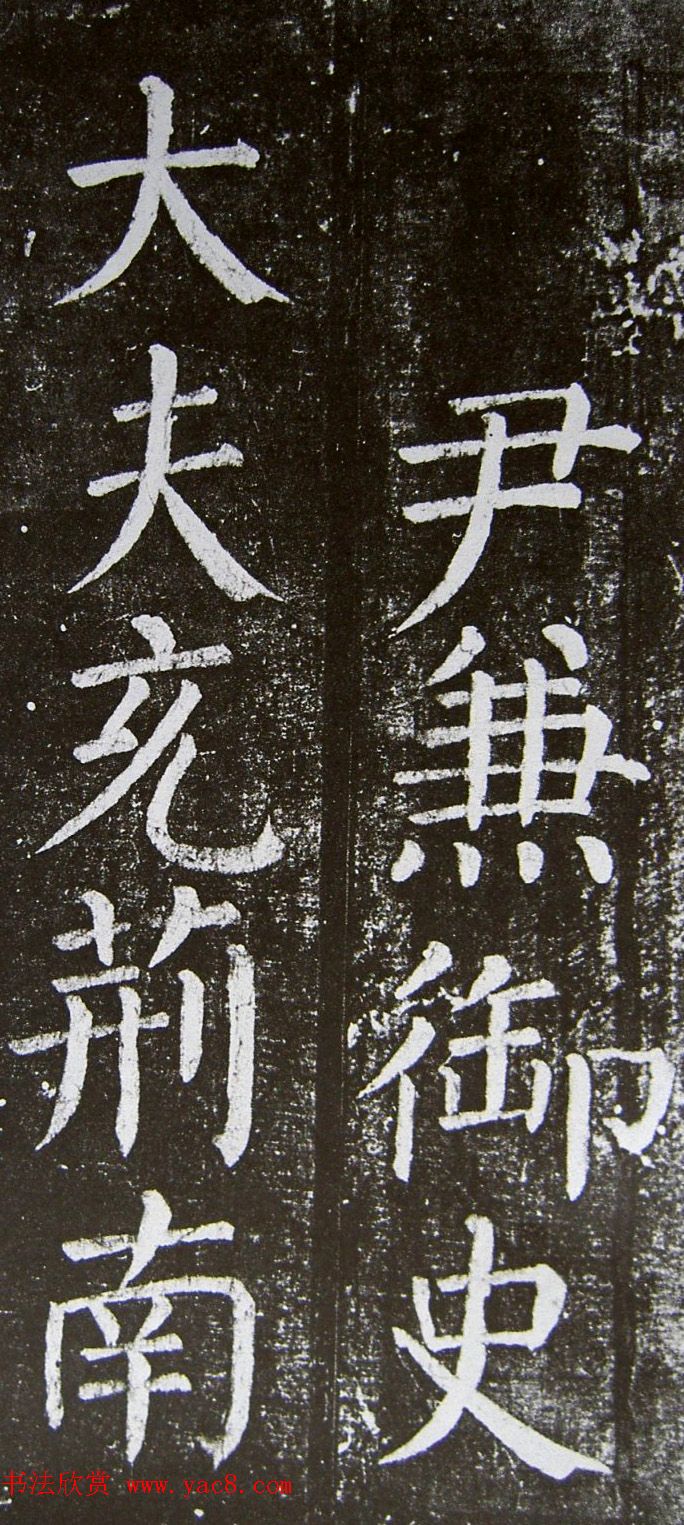 尹兼御史
大夫充荊南
书法欣赏 www.yac8.com